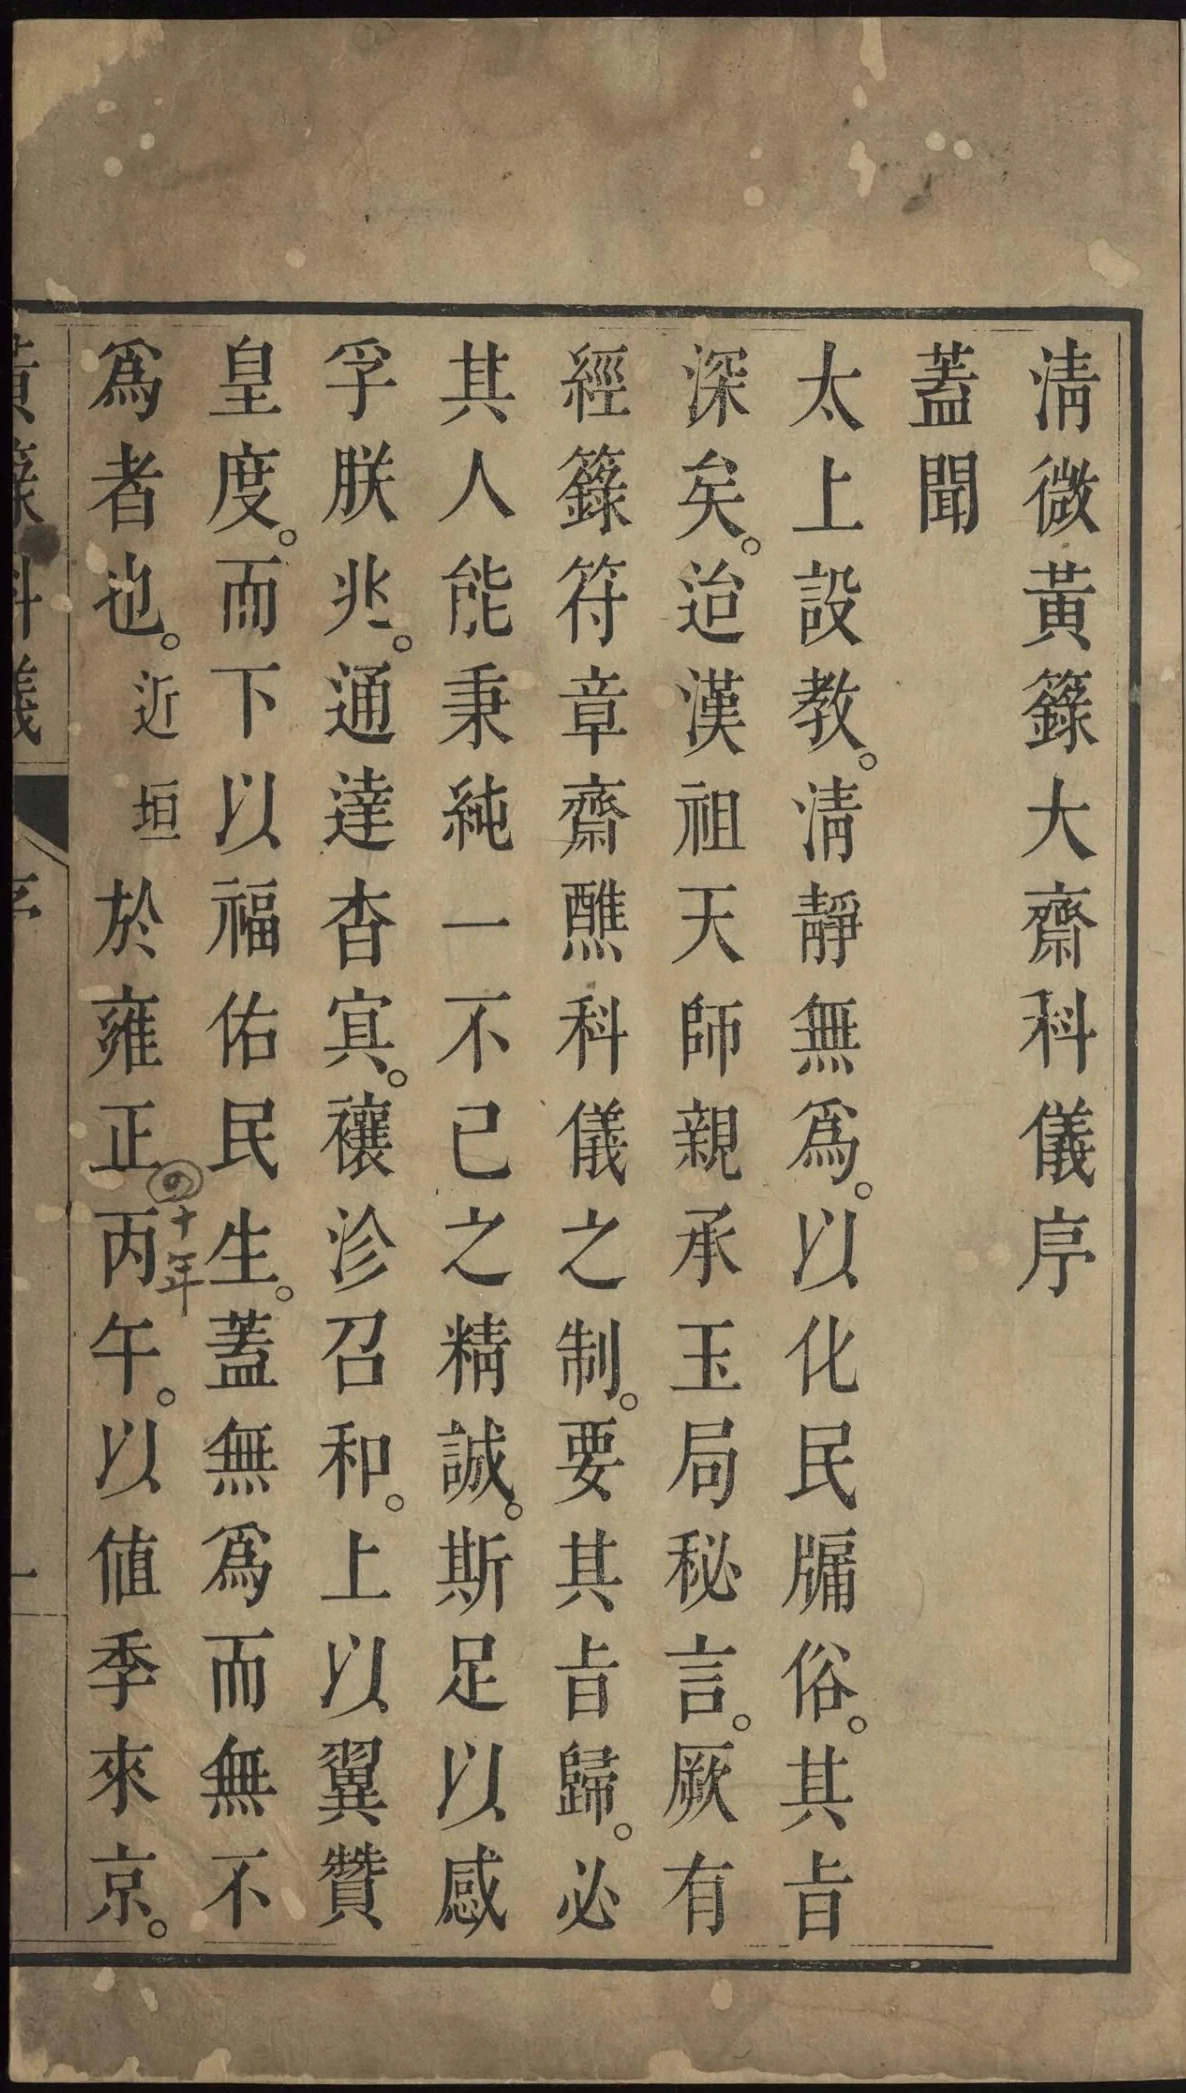 清微黃籙大齋科儀序
蓋聞
太上設教。清靜無為。以化民牖俗。其㫖
深矣。迨漢祖天師親承玉局秘言。厥有
經籙符章齋醮科儀之制。要其㫖歸。必
其人能秉純一不已之精誠。斯足以感
孚朕兆。通達杳㝠。禳沴召和。上以翼贊
皇度。而下以福佑民生。蓋無為而無不
為者也。近垣於雍正丙午。以値季來京。
十年
黃籙科儀
序
一